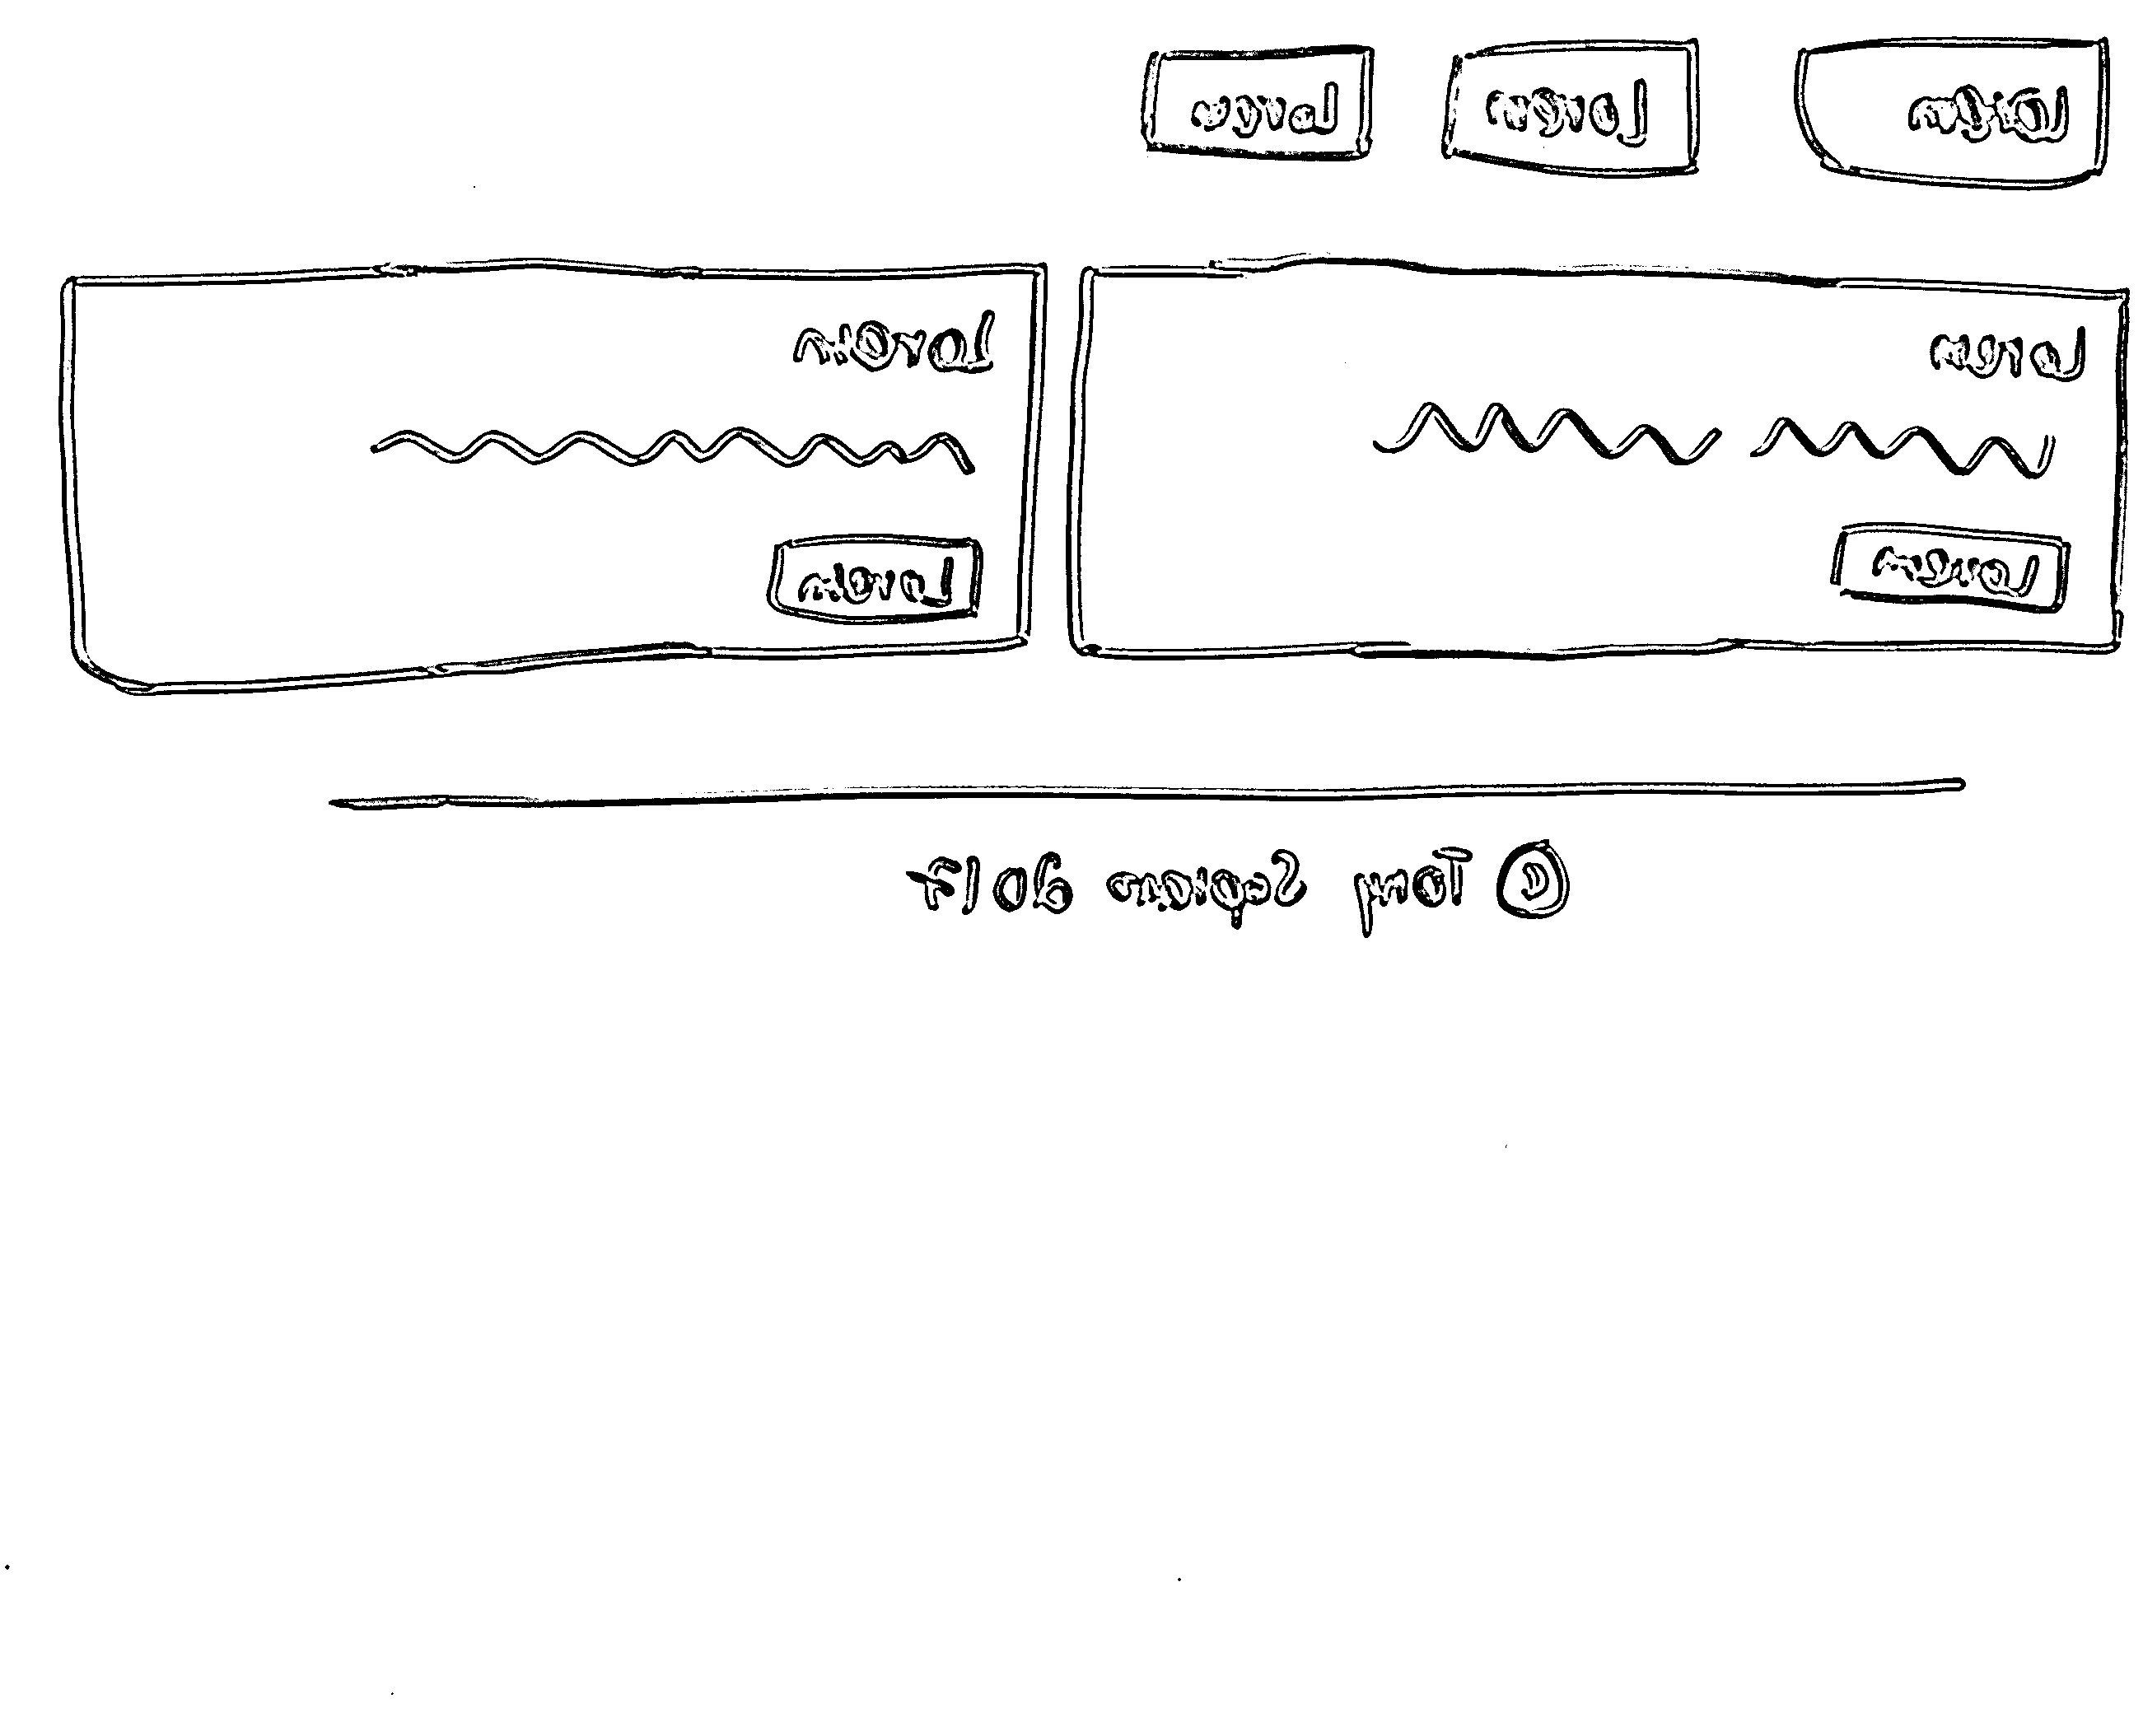 Lorem Lorem Lorem
Lorem
Lorem
Lorem
Lorem
© Tony Sepian 2017